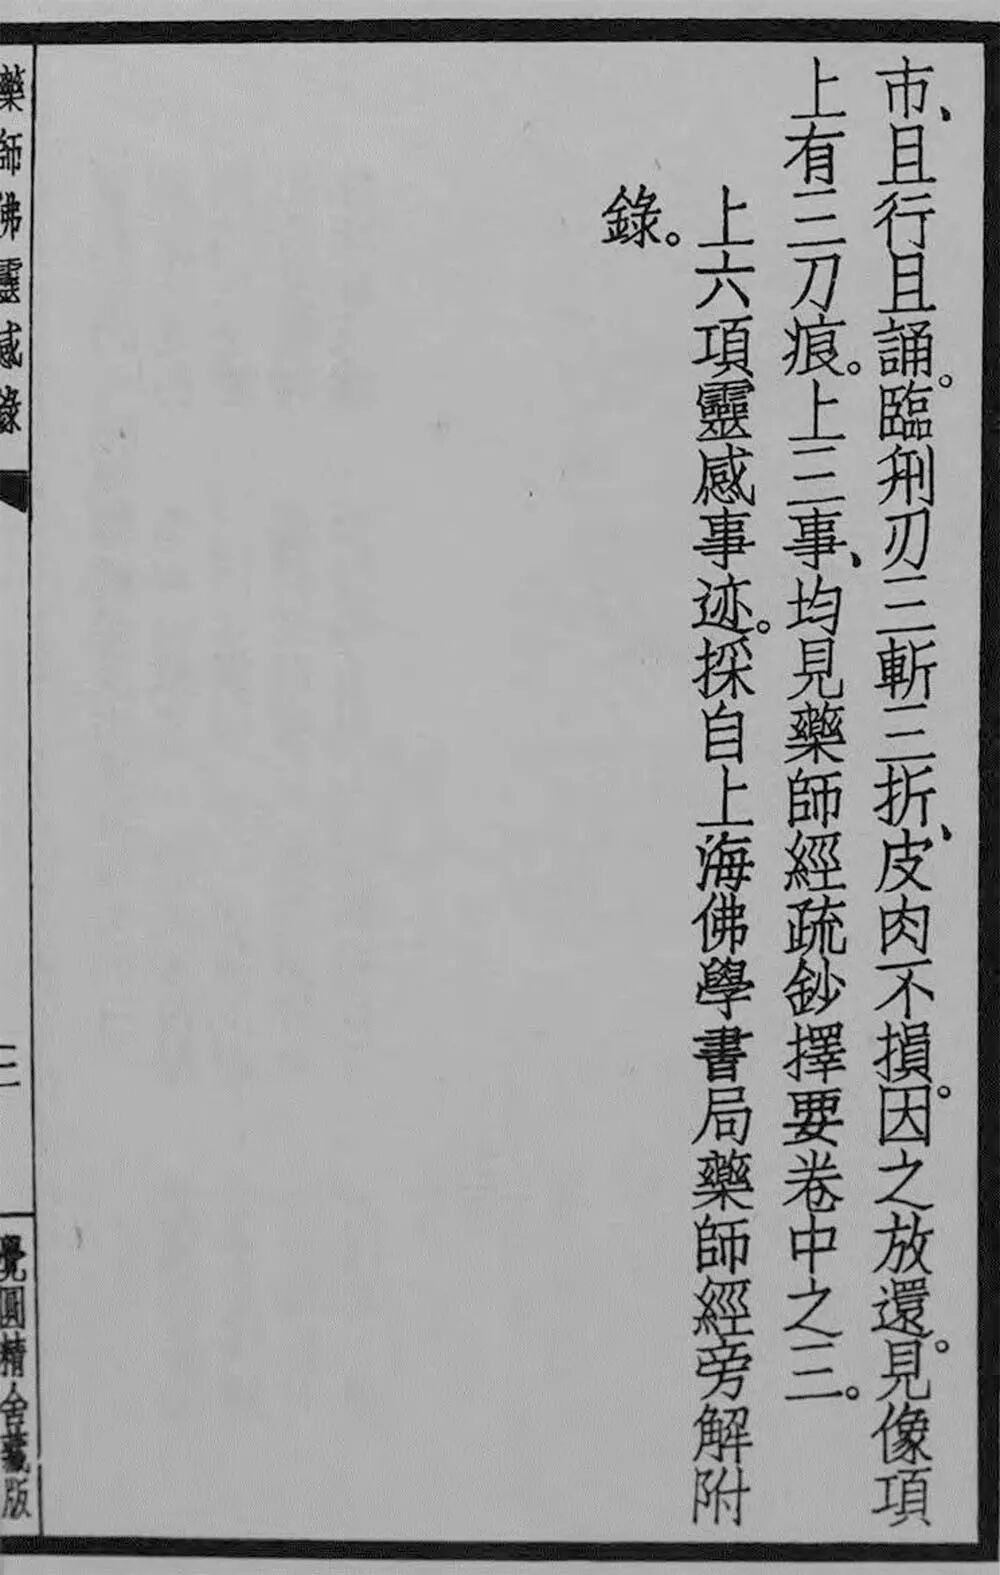 市、且行且誦。臨刑刃三斬三折、皮肉不損。因之放還。見像項
上有三刀痕。上三事、均見藥師經疏鈔擇要卷中之三。
上六項靈感事迹。採自上海佛學書局藥師經旁解附
錄。
藥師佛靈感錄
二
覺圓精舍藏版